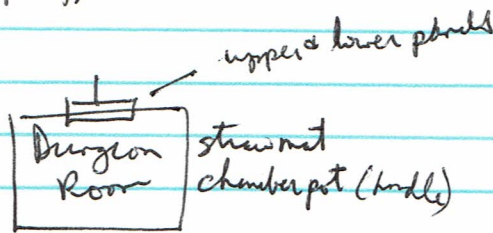 upper & lower panels
Dungeon
Room
straw mat
chamber pot (handle)